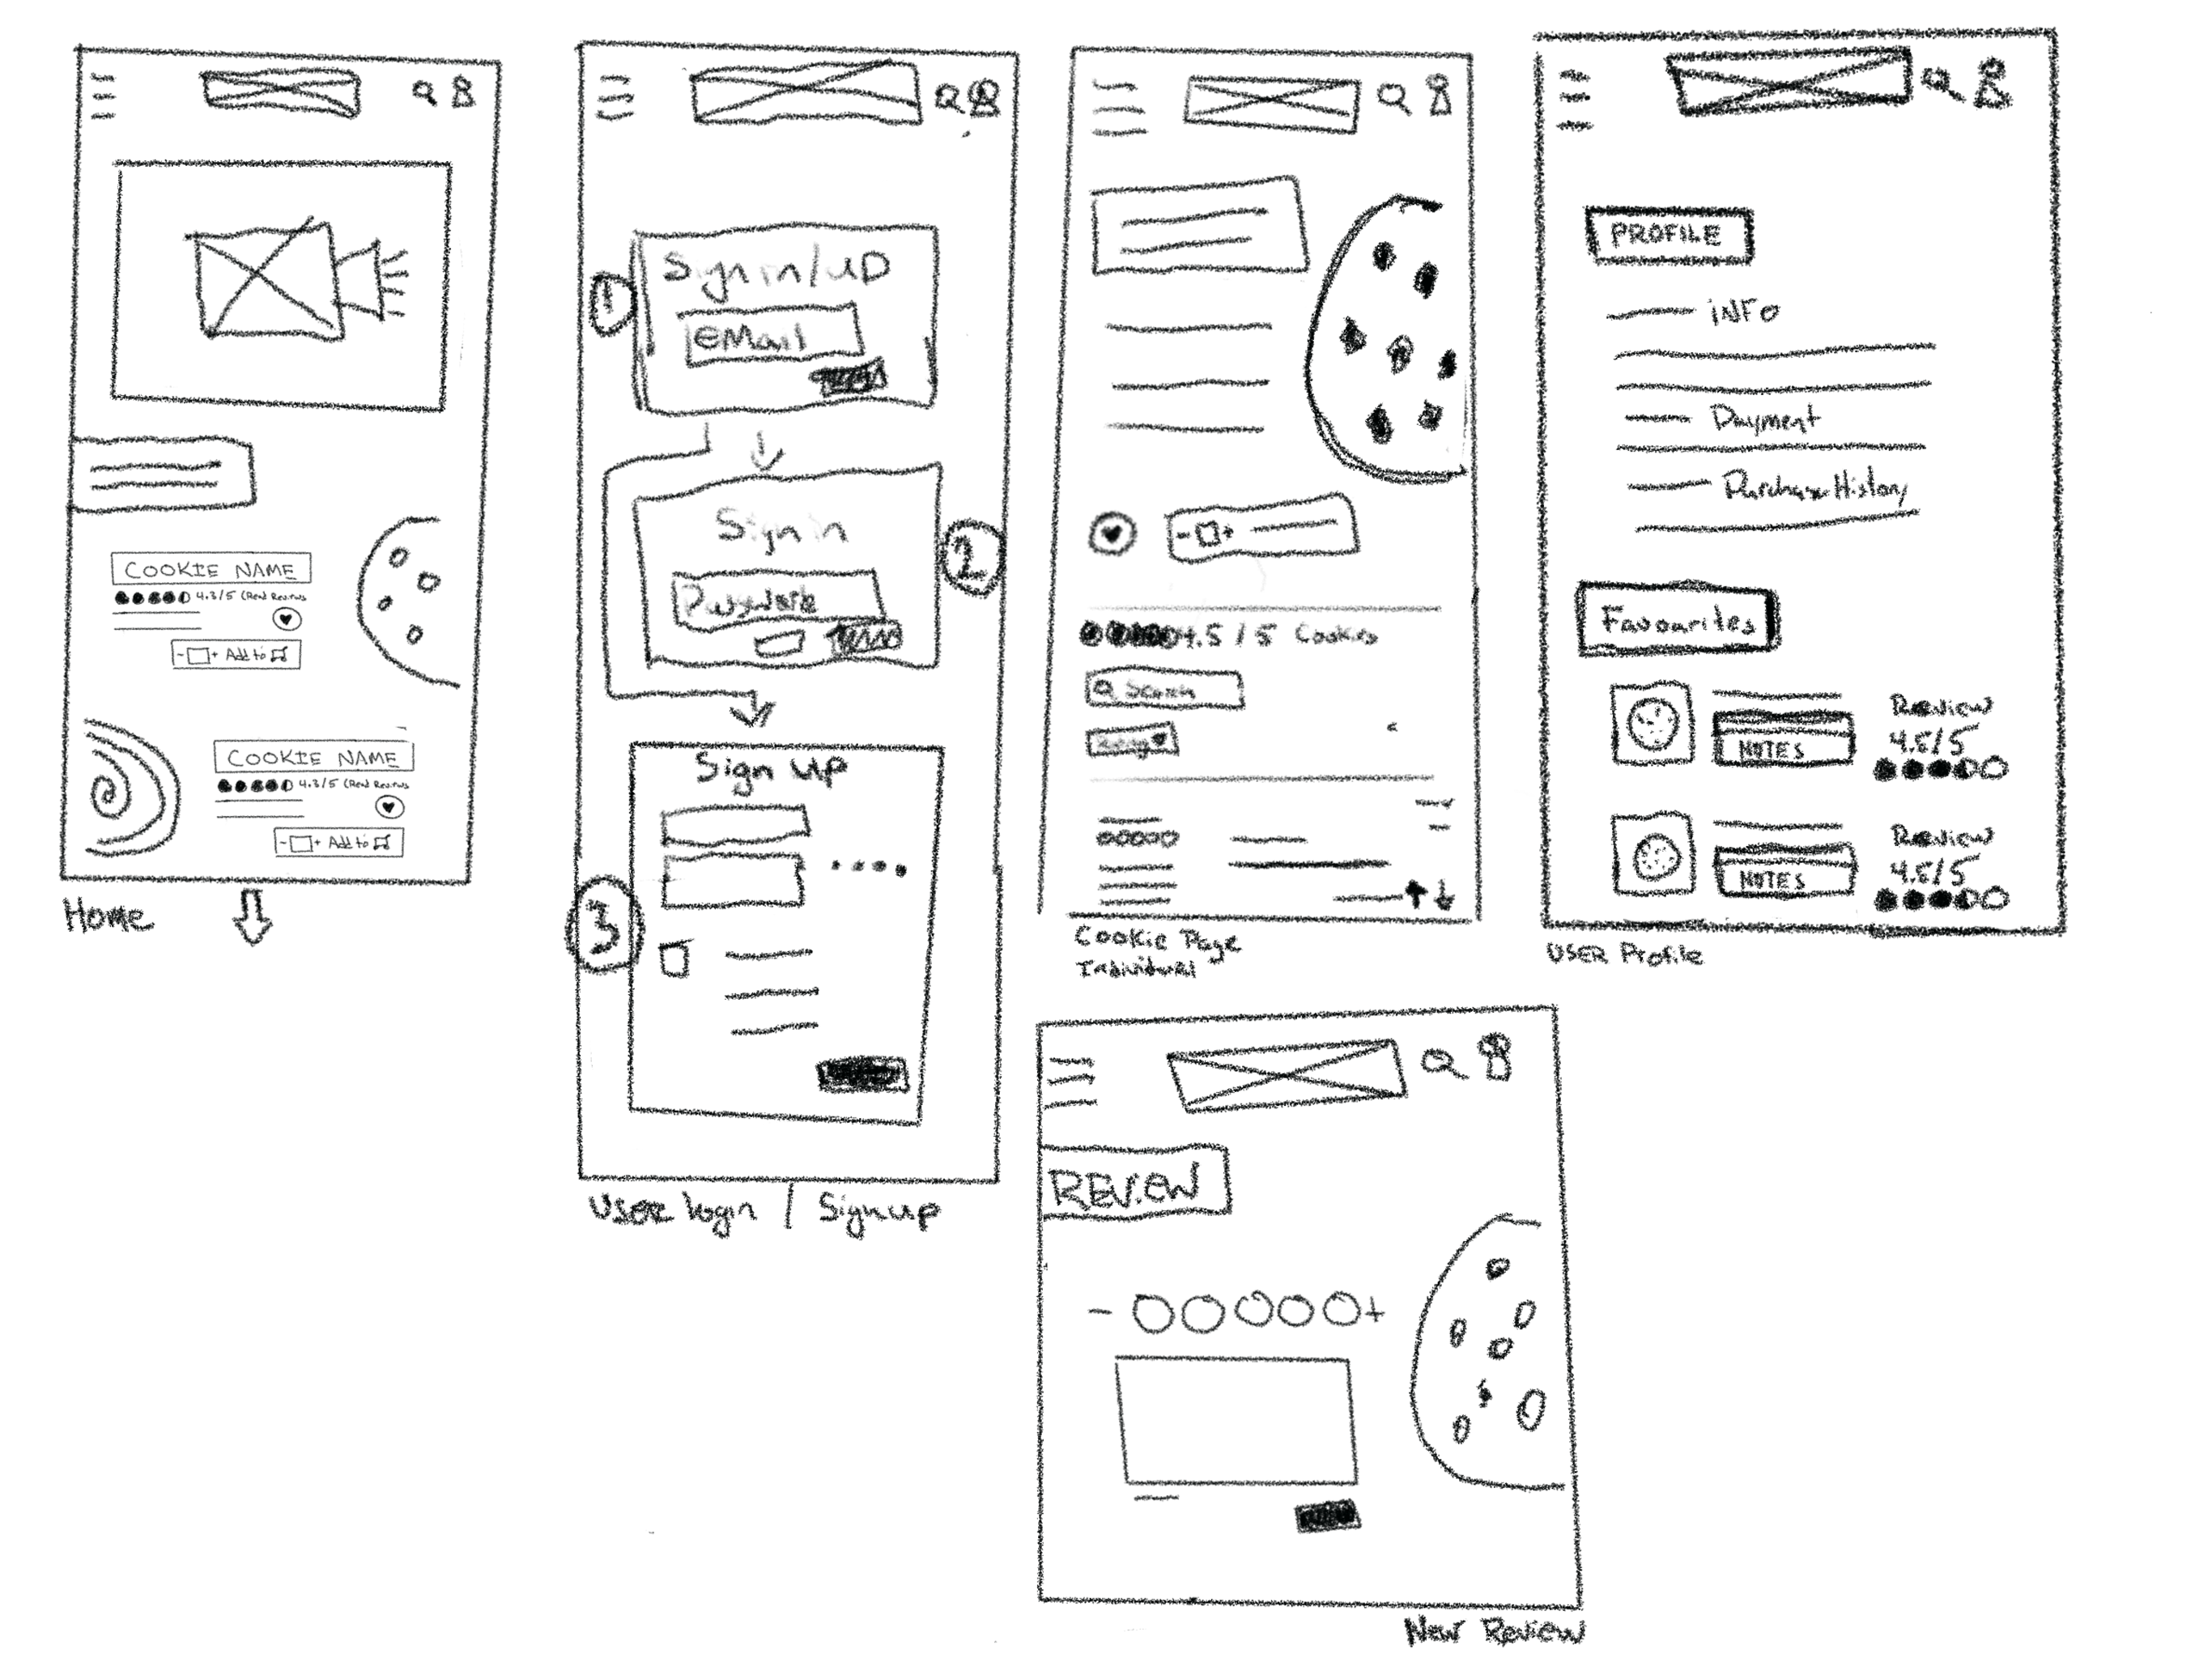 COOKIE NAME
4.3/5 (Read Reviews
- + Add to
COOKIE NAME
4.3/5 (Read Reviews
- + Add to
Home
1
Sign in/up
eMail
Sign in
2
Sign up
3
USER login / Signup
- +
4.5 / 5 Cookies
Search
Cookie Page
Individual
PROFILE
iNFo
Payment
Purchase History
Favourites
Review
4.5/5
NOTES
Review
4.5/5
NOTES
USER Profile
REViEW
- +
New Review